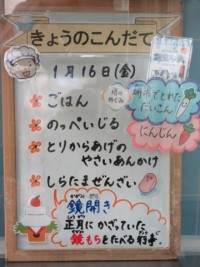 きょうのこんだて
1月16日(金)
ごはん
のっぺいじる
とりからあげの
やさいあんかけ
しらたまぜんざい
畑の
めぐみ
だいこん
にんじん
鏡開き
正月にかざっていた
鏡もちをたべる行事。